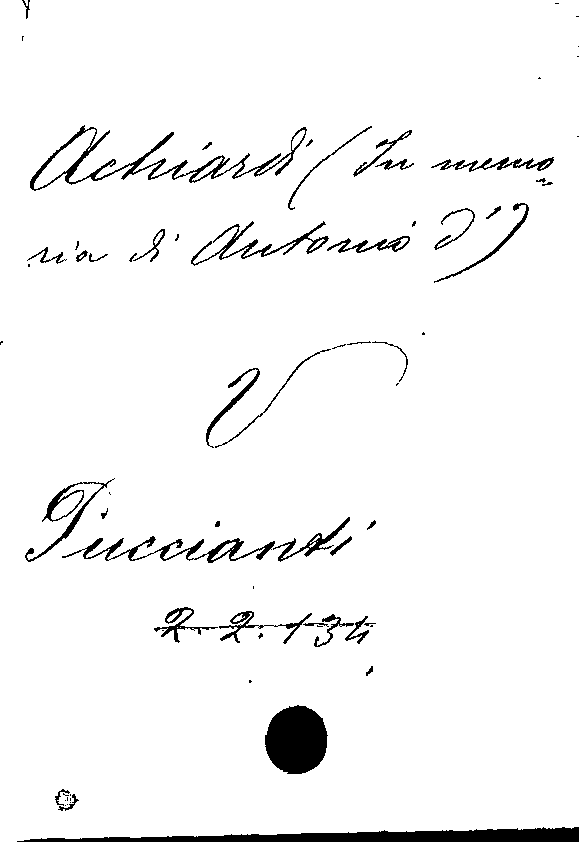 Achiardi (In memo-
ria di Antonio d')
V
Puccianti
2. 2. 134